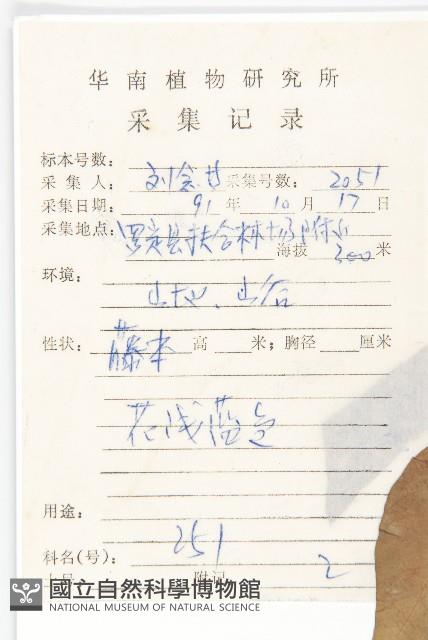 华南植物研究所
采集记录
标本号数：
采集人：刘念 采集号数：2051
采集日期：91年10月17日
采集地点：罗定县扶合林场附近
海拔 300 米
环境：山地、山谷
性状：藤本 高 米；胸径 厘米
花浅蓝色
用途：
251
科名(号)： 2
附记
國立自然科學博物館
NATIONAL MUSEUM OF NATURAL SCIENCE